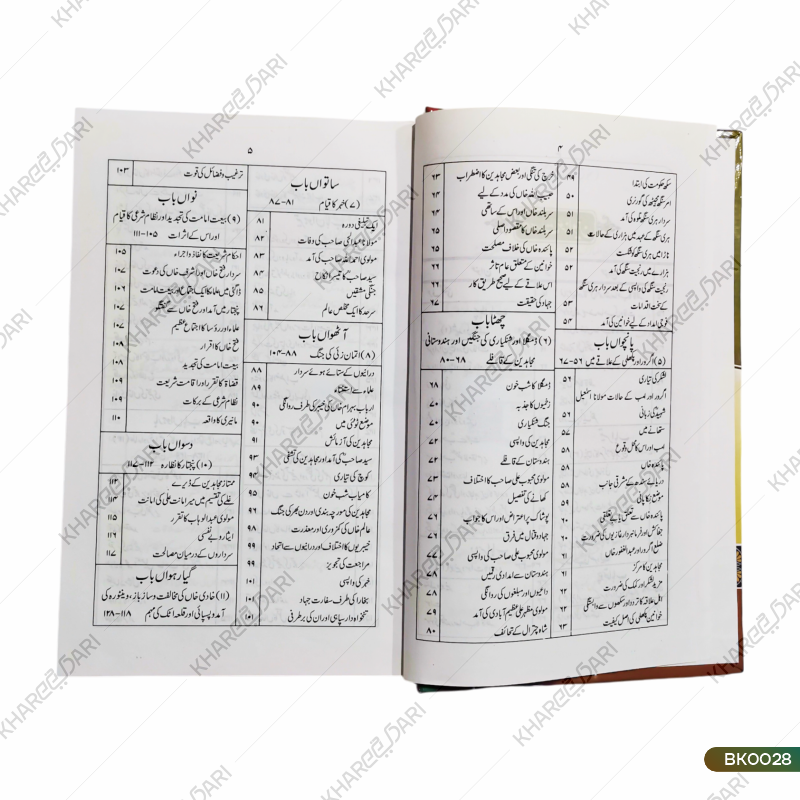 ۴
سکھ حکومت کی ابتدا
امر سنگھ مجیٹھ کی گورنری ۵۰
سردار ہری سنگھ نلوہ کی آمد ۵۱
ہری سنگھ کے عہد میں ہزارہ کے حالات ۵۱
ناڑا میں ہری سنگھ کو شکست ۵۲
ہزارے میں رنجیت سنگھ کی آمد ۵۲
رنجیت سنگھ کی واپسی کے بعد سردار ہری سنگھ
کے سخت اقدامات ۵۳
فوجی امداد کے لیے خوانین کی آمد ۵۴
پانچواں باب
(۵) اگرور اور پکھلی کے علاقے میں ۵۶-۶۷
لشکر کی تیاری ۵۶
اگرور اور امب کے حالات مولانا اسمٰعیل
شہیدؒ کی زبانی ۵۶
ستھانے میں ۵۷
امب اور اس کا محل وقوع ۵۸
پائندہ خاں ۵۸
دریائے سندھ کے مشرقی جانب ۵۸
موضع نکاپانی ۵۹
پائندہ خاں سے تعلق یا بے تعلقی ۵۹
جفاکش اور فرمانبردار غازیوں کی ضرورت ۶۰
ضلع اگرور اور عبدالغفور خاں ۶۰
مجاہدین کا مرکز ۶۱
مزید لشکر اور کمک کی ضرورت ۶۱
اہل علاقہ کا تردد اور سکھوں سے وابستگی ۶۲
خوانین پکھلی کی اصل کیفیت ۶۳
خرچ کی تنگی اور بعض مجاہدین کا اضطراب ۶۳
حبیب اللہ خاں کی مدد کے لیے ۶۴
سربلند خاں اور اس کے ساتھی ۶۴
سربلند خاں کا مقصود اصلی ۶۵
پائندہ خاں کی خلاف مصلحت ۶۵
خوانین کے متعلق عام تاثر ۶۶
اس علاقے کے لیے صحیح طریق کار ۶۶
جہاد کی حقیقت ۶۷
چھٹا باب
(۶) ڈمگلا اور شنکیاری کی جنگیں اور ہندوستانی
مجاہدین کے قافلے ۶۸-۸۰
ڈمگلا کا شب خون ۶۸
زخمیوں کا جذبہ ۷۰
جنگ شنکیاری ۷۰
مجاہدین کی واپسی ۷۲
ہندوستان کے قافلے ۷۲
مولوی محبوب علی صاحب کا اختلاف ۷۳
کھانے کی تفصیل ۷۴
پوشاک پر اعتراض اور اس کا جواب ۷۶
جہاد و قتال میں فرق ۷۶
مولوی محبوب علی صاحب کی واپسی ۷۷
ہندوستان سے امدادی رقمیں ۷۸
داعیوں اور مبلغوں کی روانگی ۷۸
مولوی مظہر علی عظیم آبادی کی آمد ۷۹
شاہ چترال کے تحائف ۸۰
۵
ساتواں باب
(۷) خہر کا قیام ۸۱-۸۷
ایک تبلیغی دورہ ۸۱
مولانا عبدالحئی صاحب کی وفات ۸۲
مولوی احمد اللہ صاحب کی آمد ۸۳
سید صاحب کا تیسرا نکاح ۸۴
جنگی مشقیں ۸۵
سرحد کا ایک مخلص عالم ۸۶
آٹھواں باب
(۸) اتمان زئی کی جنگ ۸۸-۱۰۳
درانیوں کے ستائے ہوئے سردار ۸۸
علماء سے استفتاء ۸۹
ارباب بہرام خاں کی خیبر کی طرف روانگی ۹۰
موضع ٹوٹئی میں ۹۰
مجاہدین کی آزمائش ۹۱
سید صاحبؒ کی آمد اور مجاہدین کی تشفی ۹۳
کوچ کی تیاری ۹۴
کامیاب شب خون ۹۵
مجاہدین کی مورچہ بندی اور دن بھر کی جنگ ۹۶
عالم خاں کی کمزوری اور معذرت ۹۸
خیبریوں کا اختلاف اور درانیوں سے اتحاد ۹۹
مراجعت کی تجویز
خہر کی واپسی ۱۰۱
بخارا کی طرف سفارت جہاد ۱۰۱
تنخواہ دار سپاہی اور ان کی برطرفی ۱۰۱
ترغیب و فضائل کی قوت ۱۰۳
نواں باب
(۹) بیعت امامت کی تجدید اور نظام شرعی کا قیام
اور اس کے اثرات ۱۰۵-۱۱۱
احکام شریعت کا نفاذ و اجراء ۱۰۵
سردار فتح خاں اور اشرف خاں کی دعوت ۱۰۷
ڈاگئی میں علما کا ایک اجتماع اور بیعت امامت ۱۰۷
پنجتار میں آمد اور فتح خاں سے گفتگو ۱۰۷
علماء اور رؤسا کا اجتماع عظیم ۱۰۷
فتح خاں کا اقرار ۱۰۸
بیعت امامت کی تجدید ۱۰۸
قضاۃ کا تقرر اور اقامت شریعت ۱۰۹
نظام شرعی کے برکات ۱۰۹
مانیری کا واقعہ ۱۱۰
دسواں باب
(۱۰) پنجتار کا نظارہ ۱۱۲-۱۱۷
ممتاز مجاہدین کے ڈیرے ۱۱۲
غلے کی تقسیم میں میر امانت علی کی امانت ۱۱۴
مولوی عبدالوہاب کا تقرر ۱۱۵
ایثار و بے نفسی ۱۱۶
سرداروں کے درمیان مصالحت ۱۱۷
گیارہواں باب
(۱۱) خادی خاں کی مخالفت و ساز باز، وینٹورہ کی
آمد و پسپائی اور قلعہ اٹک کی مہم ۱۱۸-۱۲۸
BK0028